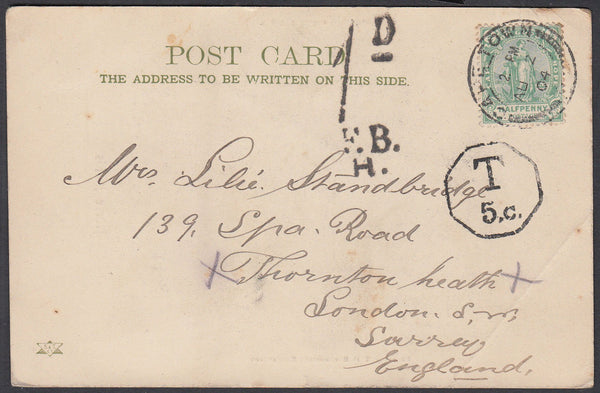 POST CARD.
THE ADDRESS TO BE WRITTEN ON THIS SIDE.
1D
F.B.
H.
CAPE TOWN
2 PM
AU
04
HALFPENNY
T
5.c.
Mrs. Lilié. Standbridge
139, Spa. Road
Thornton heath
London. S.W.
Surrey
England.